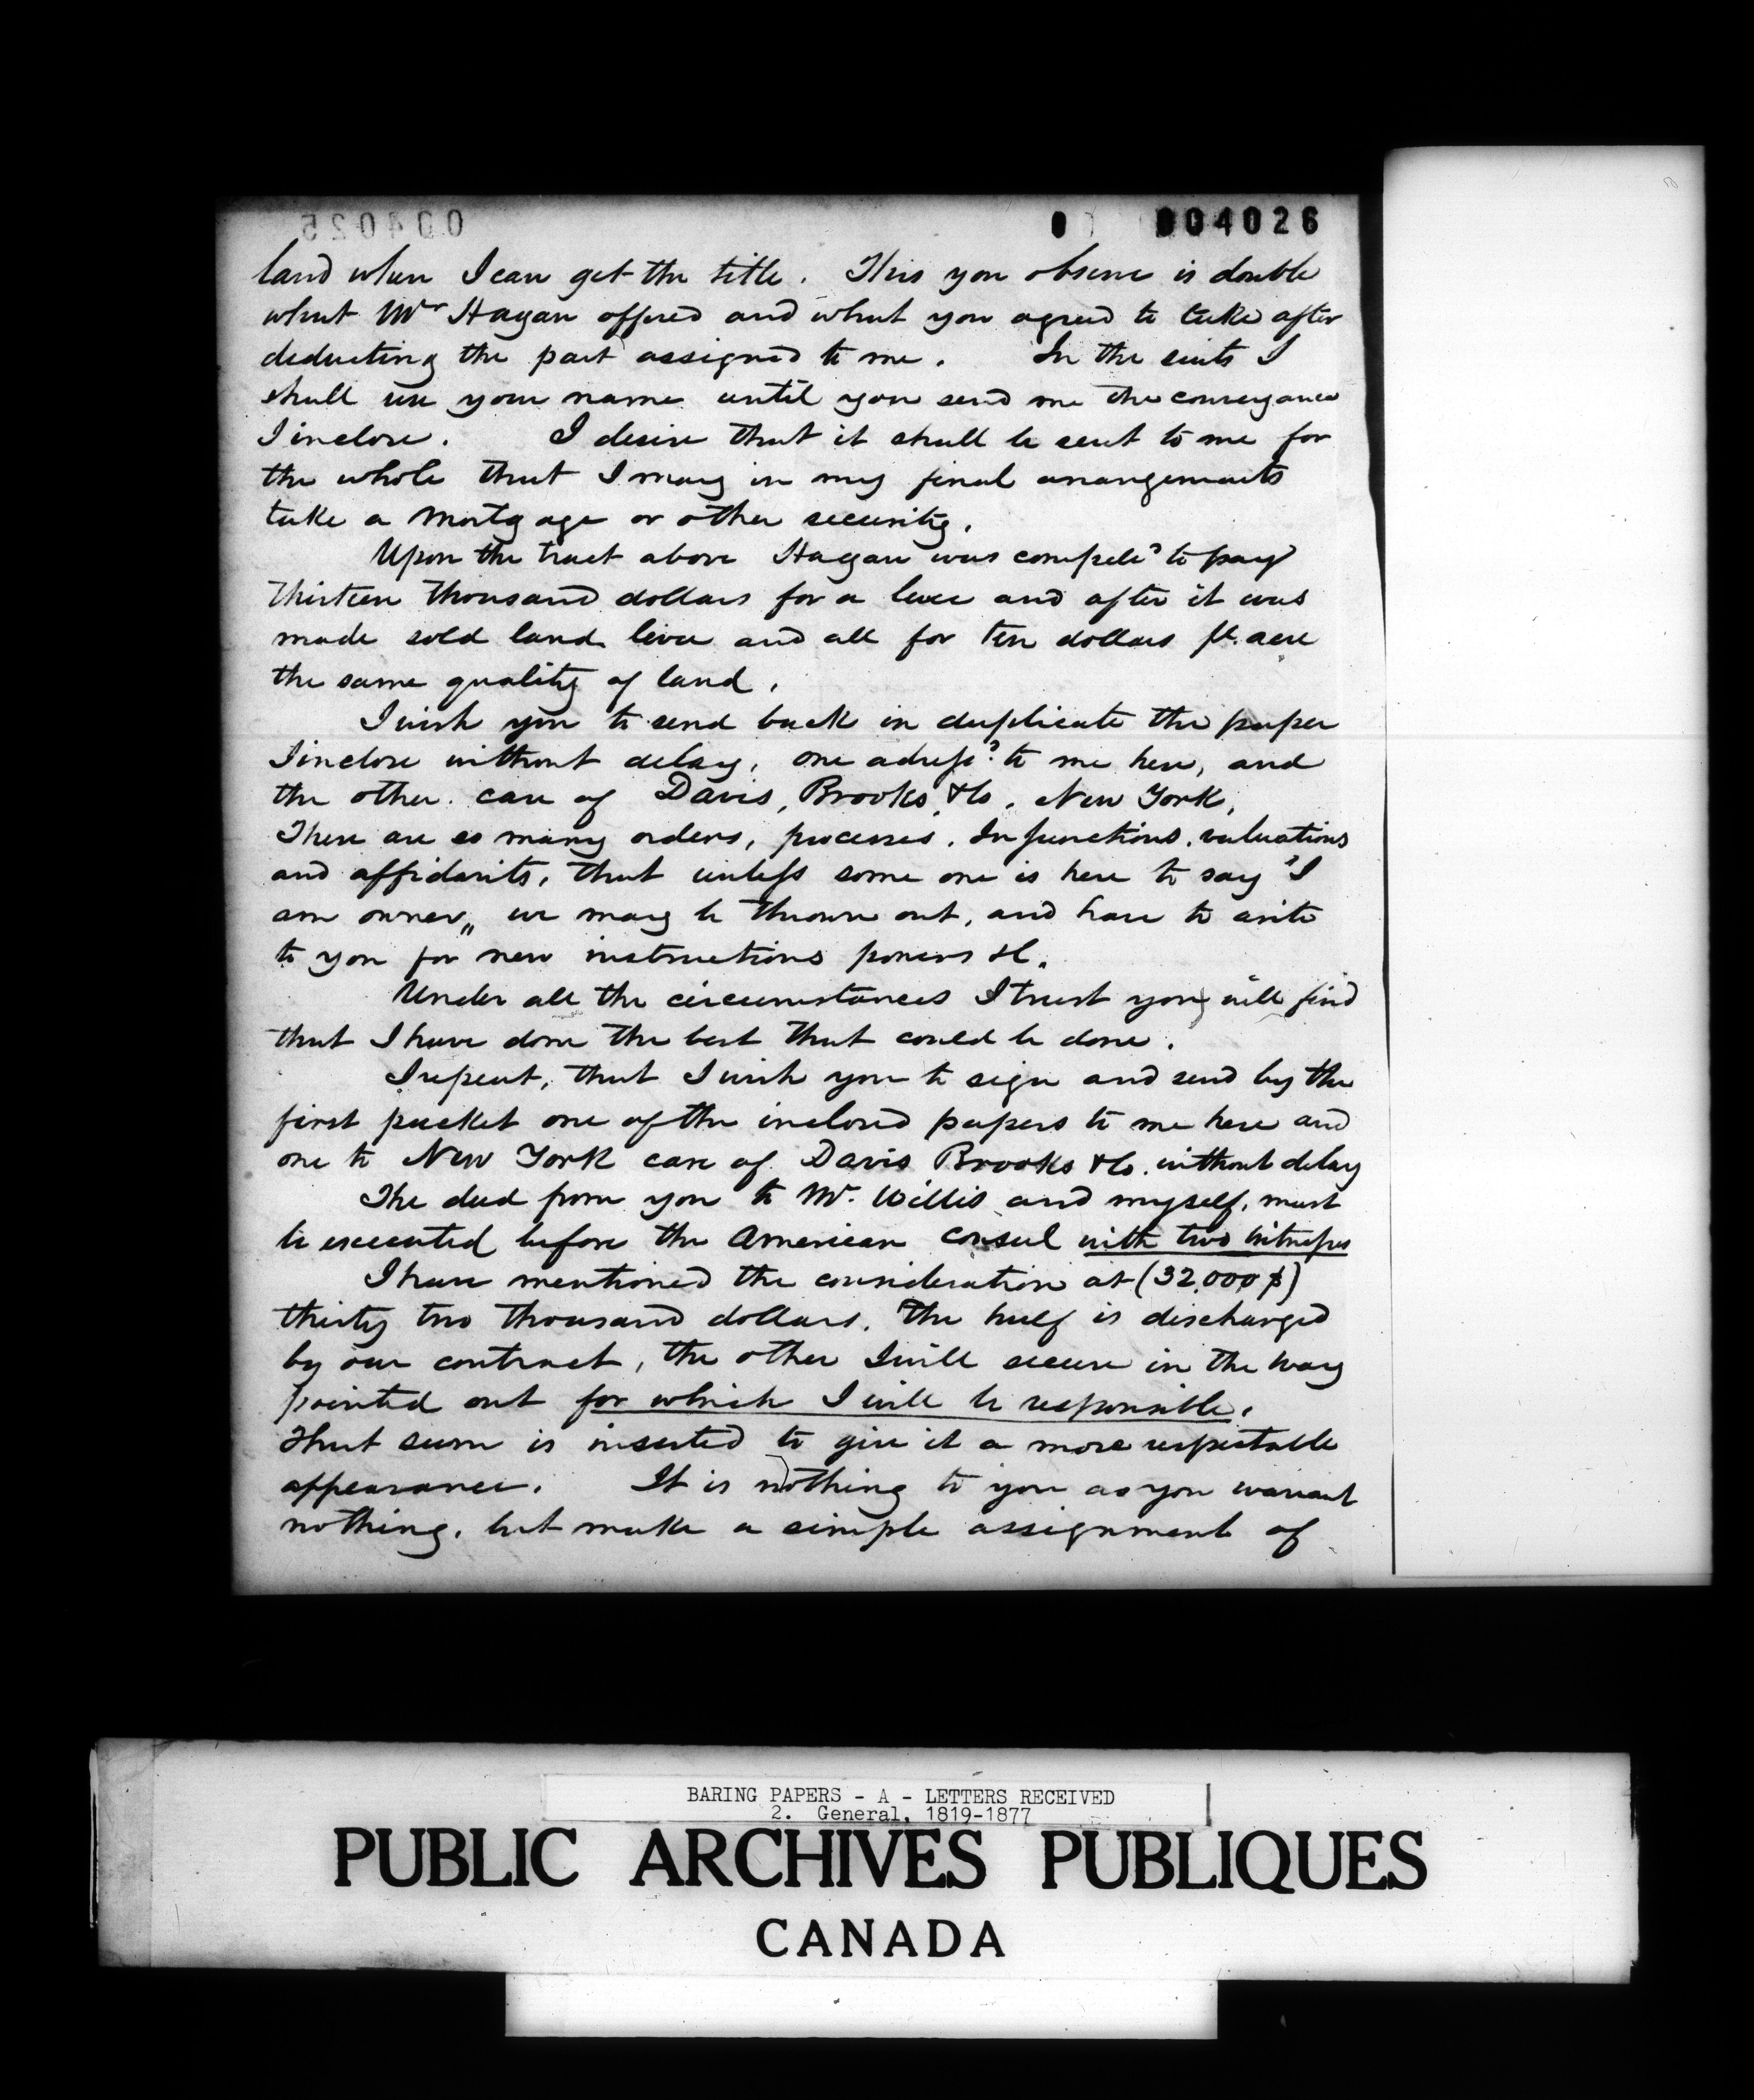 004025
004026
land when I can get the title. This you observe is double
what Mr Hagan offered and what you agreed to take after
deducting the part assigned to me. In the suits I
shall use your name until you send me the conveyance
I inclose. I desire that it shall be sent to me for
the whole that I may in my final arrangements
take a Mortgage or other security.
Upon the tract above Hagan was compelld to pay
thirteen thousand dollars for a levee and after it was
made sold land levee and all for ten dollars pr. acre
the same quality of land.
I wish you to send back in duplicate the paper
I inclose without delay, one adressd to me here, and
the other care of Davis, Brooks, & Co. New York,
There are so many orders, processes, Injunctions, valuations
and affidavits, that unless some one is here to say "I
am owner" we may be thrown out, and have to write
to you for new instructions powers &c.
Under all the circumstances I trust you will find
that I have done the best that could be done.
I repeat, that I wish you to sign and send by the
first packet one of the inclosed papers to me here and
one to New York care of Davis Brooks & Co. without delay
The deed from you to Mr. Willis and myself, must
be executed before the American Consul with two witnesses
I have mentioned the consideration at (32.000 $)
thirty two thousand dollars. The half is discharged
by our contract, the other I will secure in the way
pointed out for which I will be responsible.
That sum is inserted to give it a more respectable
appearance. It is nothing to you as you warrant
nothing, but make a simple assignment of
BARING PAPERS - A - LETTERS RECEIVED
2. General, 1819-1877
PUBLIC ARCHIVES PUBLIQUES
CANADA